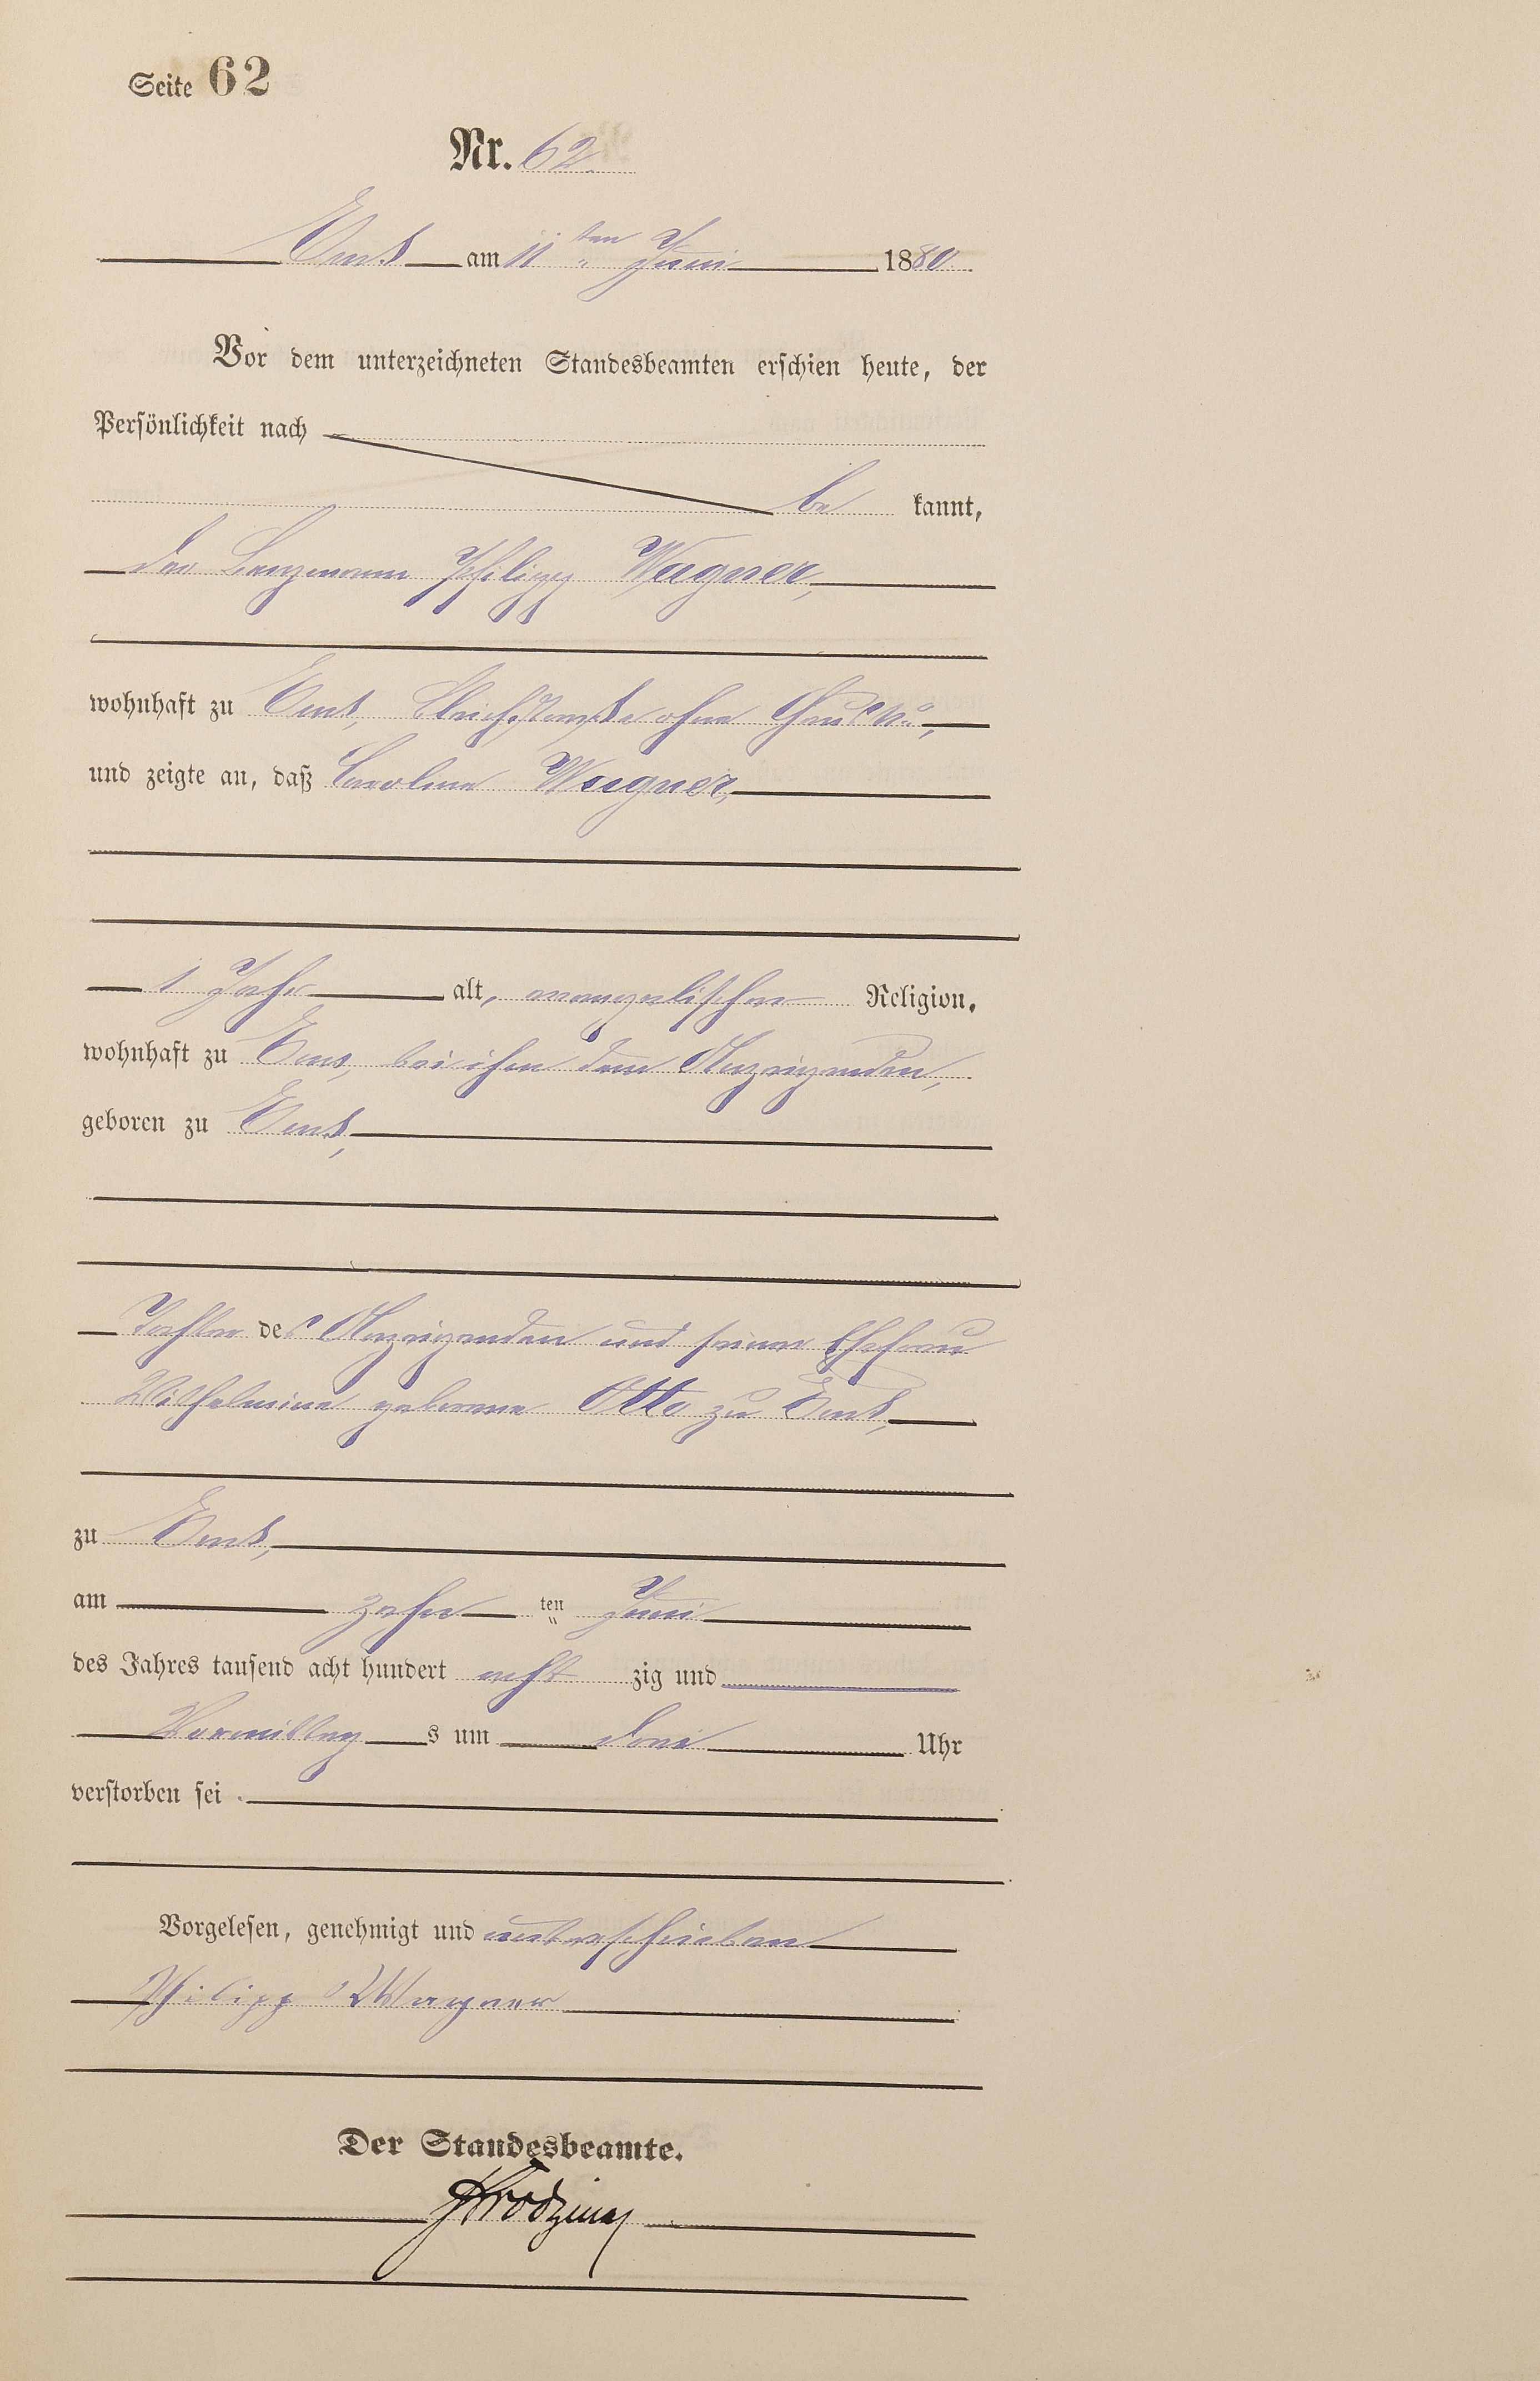 Seite 62
Nr. 62.
Ems am 11ten Juni 1880.
Vor dem unterzeichneten Standesbeamten erschien heute, der
Persönlichkeit nach
be kannt,
der Bergmann Philipp Wagner,
wohnhaft zu Ems, Bleichstraße ohne
und zeigte an, daß Caroline Wagner,
1 Jahr alt, evangelischer Religion,
wohnhaft zu Ems, bei ihm dem Anzeigenden,
geboren zu Ems,
Tochter des Anzeigenden und seiner Ehefrau
Wilhelmine geborene Otto zu Ems,
zu Ems,
am zehn ten Juni
des Jahres tausend acht hundert acht zig und
Vormittag s um drei Uhr
verstorben sei.
Vorgelesen, genehmigt und unterschrieben
Philipp Wagner
Der Standesbeamte.